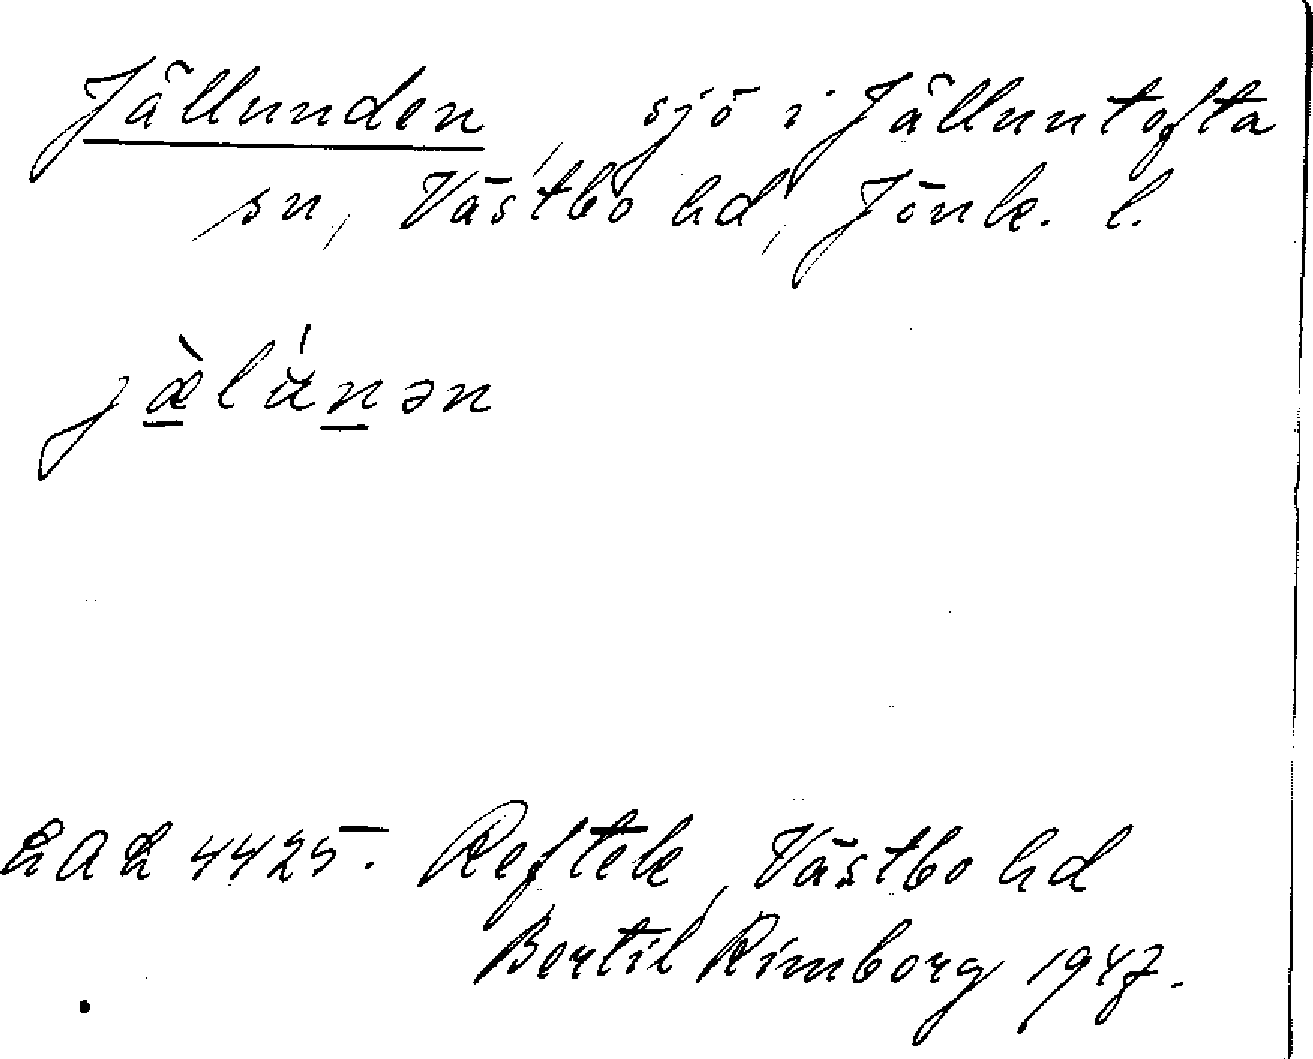 Jällunden, sjö i Jälluntofta
sn, Västbo hd, Jönk. l.
j<u>æ̀</u>lú<u>n</u>ən
LAL 4425. Reftele, Västbo hd
Bertil Rimborg 1947.